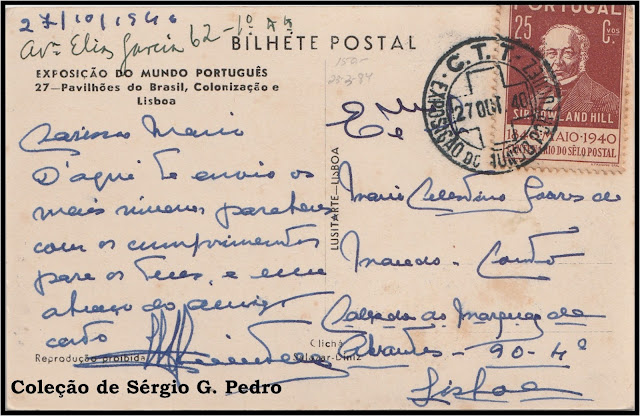 27/10/1940
Avª Elias Garcia 62-1º
BILHETE POSTAL
EXPOSIÇÃO DO MUNDO PORTUGUÊS
27—Pavilhões do Brasil, Colonização e
Lisboa
Mario
D'aqui te envio os
mais sinceros parabens
com os cumprimentos
para os teus, e um
abraço do amigo
certo
Reprodução proibida
LUSITARTE—LISBOA
Clichá
Salazar-Diniz
PORTUGAL
25 CVOS
C.
SIR ROWLAND HILL
1840-MAIO-1940
CENTENÁRIO DO SÊLO POSTAL
C.T.T.
27 OUT 40
EXPOSIÇÃO DO MUNDO PORTUGUÊS
150-
25-3-84
Mario Celestino Soares de
Macedo - Couto
Calçada do Marquez de
Abrantes - 90-4º
Lisboa
Coleção de Sérgio G. Pedro